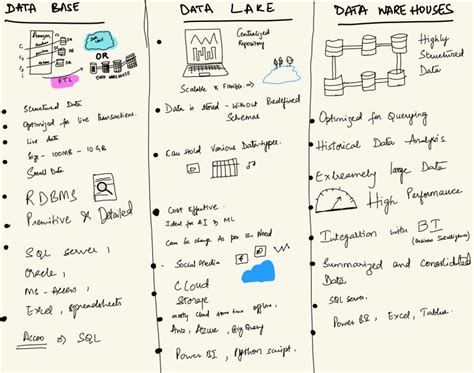 DATA BASE
OR
ETL
Structured Data
Optimized for live transactions.
Live data
Size - 100MB - 10GB
Small Data
RDBMS
Primitive & Detailed
SQL server,
Oracle,
Ms-Access,
Excel, spreadsheets
SQL
DATA LAKE
Centralized
Repository
Scalable & Flexible
Data is stored - Without Predefined
Schemas
Can Hold Various Data types.
Cost Effective.
Ideal for AI & ML
Can be change As per the Need
- Social Media
CLoud
Storage
mostly cloud some time offline,
Azure, Big Query
Power BI, Python script.
DATA WAREHOUSES
Highly
Structured
Data
Optimized for Querying
Historical Data Analysis
Extremely large Data
High Performance
Integration with BI
(Business Intelligence)
Summarized and Consolidated
Data
SQL server.
Power BI, Excel,